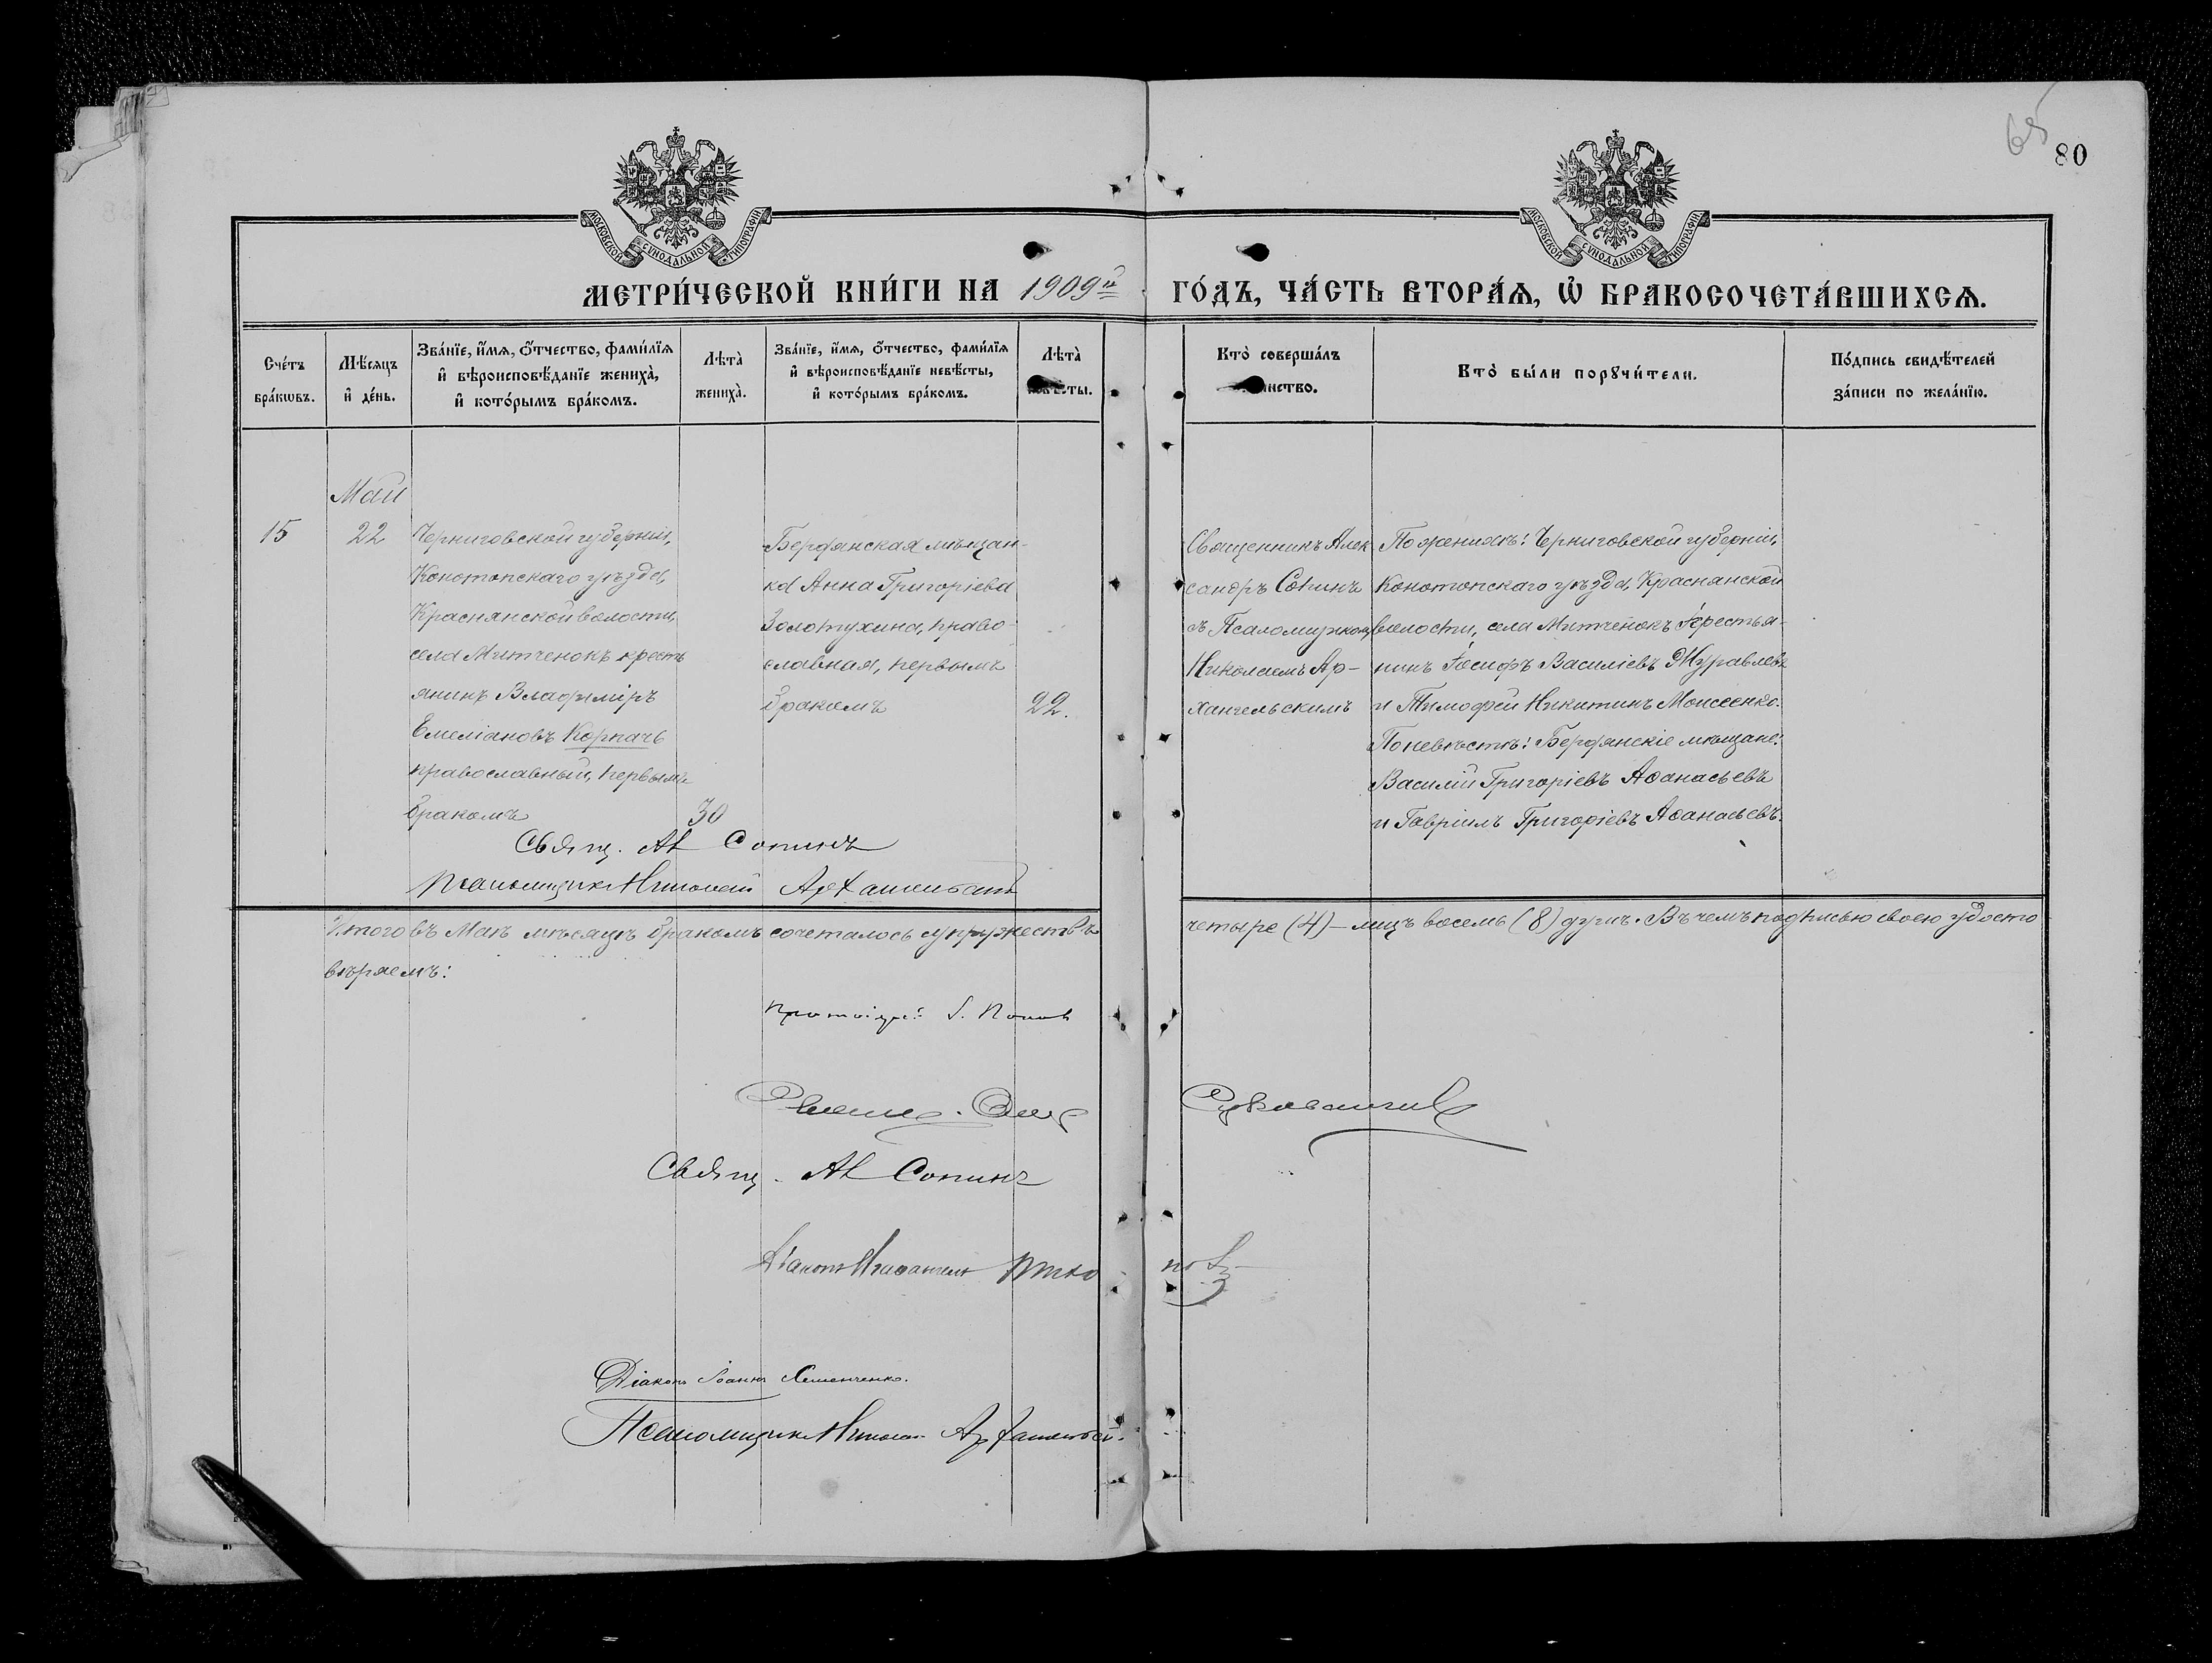 65
80
МОСКОВСКОЙ СѴНОДАЛЬНОЙ ТИПОГРАФІИ
МОСКОВСКОЙ СѴНОДАЛЬНОЙ ТИПОГРАФІИ
МЕТРИ́ЧЕСКОЙ КНИ́ГИ НА 1909й ГО́ДЪ, ЧА́СТЬ ВТОРА́Ѧ, Ѿ БРАКОСОЧЕТА́ВШИХСѦ.
Сче́тъ
бра́кѡвъ.
Мѣ́сяцъ
и҆ де́нь.
Зва́нїе, и҆́мѧ, ѻ҆́тчество, фами́лїѧ
и҆ вѣроисповѣ́данїе жениха̀,
и҆ кото́рымъ бра́комъ.
Лѣта̀
жениха̀.
Зва́нїе, и҆́мѧ, ѻ҆́тчество, фами́лїѧ
и҆ вѣроисповѣ́данїе невѣ́сты,
и҆ кото́рымъ бра́комъ.
Лѣта̀
невѣ́сты.
Кто̀ соверша́лъ
инство.
Кто̀ бы́ли порꙋчи́тели.
По́дпись свидѣ́телей
за́писи по жела́нїю.
Май
15
22
Черниговской губерніи,
Конотопскаго уѣзда,
Краснянской волости,
села Митченокъ кресть
янинъ Владиміръ
Емеліановъ Корпачъ
православный, первымъ
бракомъ
30
Бердянская мѣщан-
ка Анна Григоріева
Золотухина, право-
славная, первымъ
бракомъ
22.
Священникъ Алек
сандръ Сопинъ
съ Псаломщиком
Николаемъ Ар-
хангельскимъ
По женихѣ: Черниговской губерніи,
Конотопскаго уѣзда, Краснянской
волости, села Митченокъ Крестья-
нинъ Іосифъ Василіевъ Журавлевъ
и Тимофей Никитинъ Моисеенко.
По невѣстѣ: Бердянскіе мѣщане:
Василій Григоріевъ Аѳанасьевъ
и Гавріилъ Григоріевъ Аѳанасьевъ.
Свящ. Ал Сопинъ
Псаломщикъ Николай Архангельскій
Итого въ Маѣ мѣсяцѣ бракомъ сочеталось супружествъ четыре (4) – лицъ восемь (8) душъ. Въ чемъ подписью своею удосто
вѣряемъ:
Протоіерей І. Поповъ
Свящ. Ал Сопинъ
Діаконъ
Діаконъ Іоаннъ Семенченко.
Псаломщикъ Николай Архангельскій.